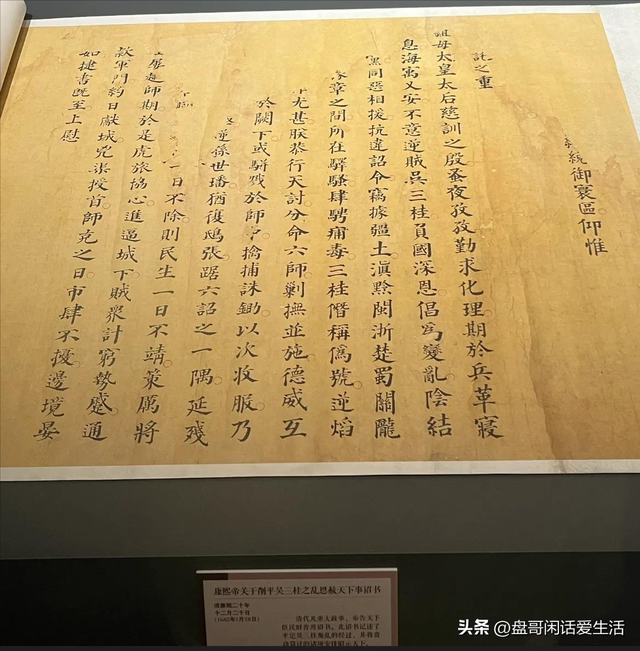 統御寰區仰惟
託之重
祖母太皇太后慈訓之殷蚤夜孜孜勤求化理期於兵革寢
息海寓乂安不意逆賊吳三桂負國深恩倡為變亂陰結
黨同惡相援抗違詔令竊據疆土滇黔閩浙楚蜀關隴
豫章之間所在驛騷肆騁痡毒三桂僭稱偽號逆焰
尤甚朕恭行天討分命六師剿撫並施德威互
於闕下或駢戮於師中擒捕誅鋤以次收服乃
逆孫世璠猶復鴟張踞六詔之一隅延殘
一日不除則民生一日不靖策厲將
屢趣師期於是虎旅協心進逼城下賊眾計窮勢蹙通
款軍門約日獻城兇渠授首師克之日市肆不擾邊境晏
如捷書既至上慰
康熙帝关于削平吴三桂之乱恩赦天下事诏书
清康熙二十年
十二月二十日
(1682年1月28日)
清代凡重大政事,布告天下
臣民时皆用诏书。此诏书记述了
平定吴三桂叛乱的经过,并将
头条 @盘哥闲话爱生活